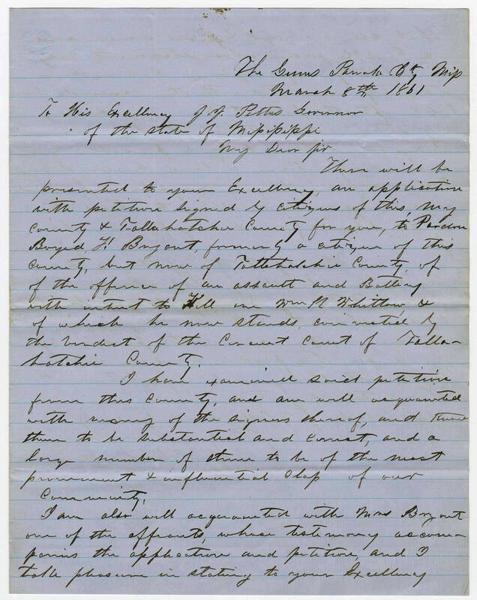 The Gums Panola Cty Miss
March 8th 1861
To His Excellency J. J. Pettus Governor
of the state of Mississippi
My Dear Sir
There will be
presented to your Excellency an application
with petition signed by citizens of this, my
county & Tallahatchie County for you, to Pardon
Boyed H Bryant, formerly a citizen of this
County, but now of Tallahatchie County, of
of the offence of an assault and Battery
with intent to Kill one Wm N Whitten, &
of which he now stands, convicted by
the verdict of the Circuit Court of Talla-
hatchie County.
I have examined said petition
from this County, and am well acquainted
with many of the signers thereof, and know
them to be substantial and correct, and a
large number of them to be of the most
prominent & influential class of our
Community.
I am also well acquainted with Mrs Bryant
one of the affiants, whose testimony accom-
panies the application and petition, and I
take pleasure in stating to your Excellency